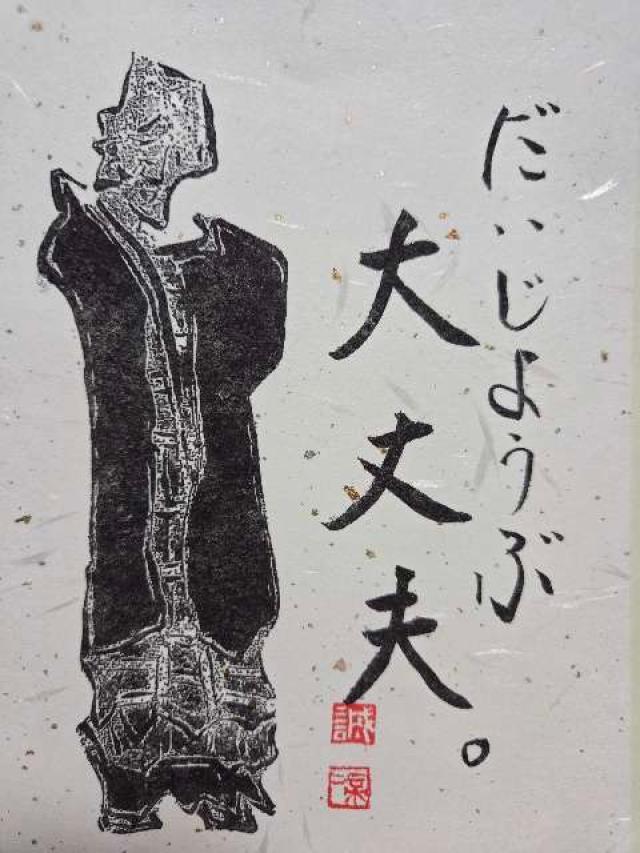 だいじょうぶ
大丈夫。
誠